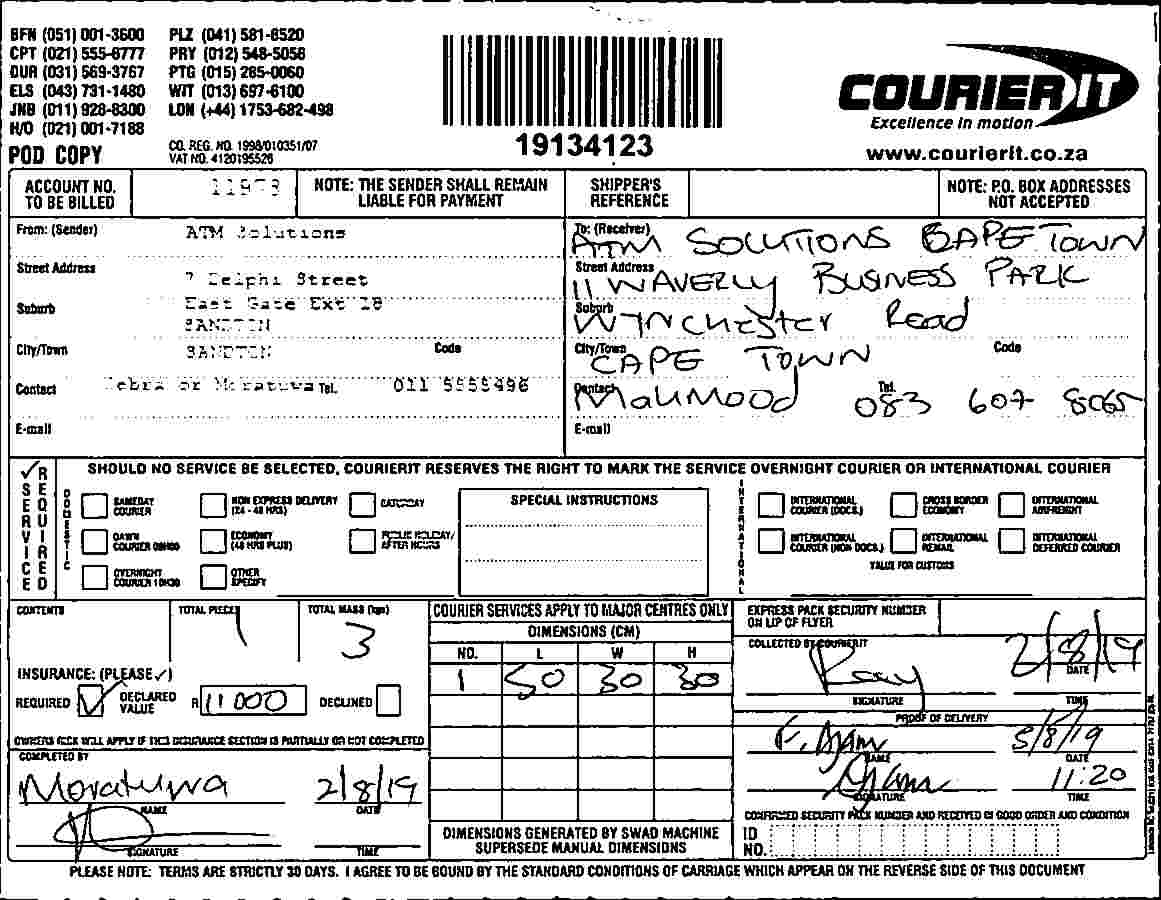 BFN (051) 001-3600 PLZ (041) 581-8520
CPT (021) 555-6777 PRY (012) 548-5056
DUR (031) 569-3767 PTG (015) 285-0060
ELS (043) 731-1480 WIT (013) 697-6100
JNB (011) 928-8300 LON (+44) 1753-682-498
H/O (021) 001-7188
POD COPY
CO. REG. NO. 1998/010351/07
VAT NO. 4120195526
19134123
COURIER IT
Excellence in motion
www.courierit.co.za
ACCOUNT NO. TO BE BILLED 11978
NOTE: THE SENDER SHALL REMAIN LIABLE FOR PAYMENT
SHIPPER'S REFERENCE
NOTE: P.O. BOX ADDRESSES NOT ACCEPTED
From: (Sender) ATM Solutions
Street Address 7 Delphi Street
Suburb East Gate Ext 18
SANDTON
City/Town SANDTON Code
Contact Debra or Moratuwa Tel. 011 5555496
E-mail
To: (Receiver) ATM SOLUTIONS CAPE TOWN
Street Address 11 WAVERLY BUSINESS PARK
Suburb WINCHESTER Road
City/Town CAPE TOWN Code
Contact MAHMOOD Tel. 083 607 8065
E-mail
SERVICE REQUIRED
SHOULD NO SERVICE BE SELECTED, COURIERIT RESERVES THE RIGHT TO MARK THE SERVICE OVERNIGHT COURIER OR INTERNATIONAL COURIER
DOMESTIC
SAMEDAY COURIER
NON EXPRESS DELIVERY (24 - 48 HRS)
SATURDAY
DAWN COURIER 08H00
ECONOMY (48 HRS PLUS)
PUBLIC HOLIDAY/ AFTER HOURS
OVERNIGHT COURIER 10H30
OTHER SPECIFY
SPECIAL INSTRUCTIONS
INTERNATIONAL
INTERNATIONAL COURIER (DOCS.)
CROSS BORDER ECONOMY
INTERNATIONAL AIRFREIGHT
INTERNATIONAL COURIER (NON DOCS.)
INTERNATIONAL REMAIL
INTERNATIONAL DEFERRED COURIER
VALUE FOR CUSTOMS
CONTENTS
TOTAL PIECES 1
TOTAL MASS (kgs) 3
INSURANCE: (PLEASE ✓)
REQUIRED ✓ DECLARED VALUE R 11 000 DECLINED
OWNERS RISK WILL APPLY IF THIS INSURANCE SECTION IS PARTIALLY OR NOT COMPLETED
COMPLETED BY
Moratuwa 2/8/19
NAME DATE
SIGNATURE TIME
COURIER SERVICES APPLY TO MAJOR CENTRES ONLY
DIMENSIONS (CM)
NO. L W H
1 50 30 30
DIMENSIONS GENERATED BY SWAD MACHINE SUPERSEDE MANUAL DIMENSIONS
EXPRESS PACK SECURITY NUMBER ON LIP OF FLYER
COLLECTED BY COURIERIT
Ray 2/8/19
DATE
SIGNATURE TIME
PROOF OF DELIVERY
F. Ajam 5/8/19
NAME DATE
Ajam 11:20
SIGNATURE TIME
CONFIRMED SECURITY PACK NUMBER AND RECEIVED IN GOOD ORDER AND CONDITION
ID NO.
PLEASE NOTE: TERMS ARE STRICTLY 30 DAYS. I AGREE TO BE BOUND BY THE STANDARD CONDITIONS OF CARRIAGE WHICH APPEAR ON THE REVERSE SIDE OF THIS DOCUMENT